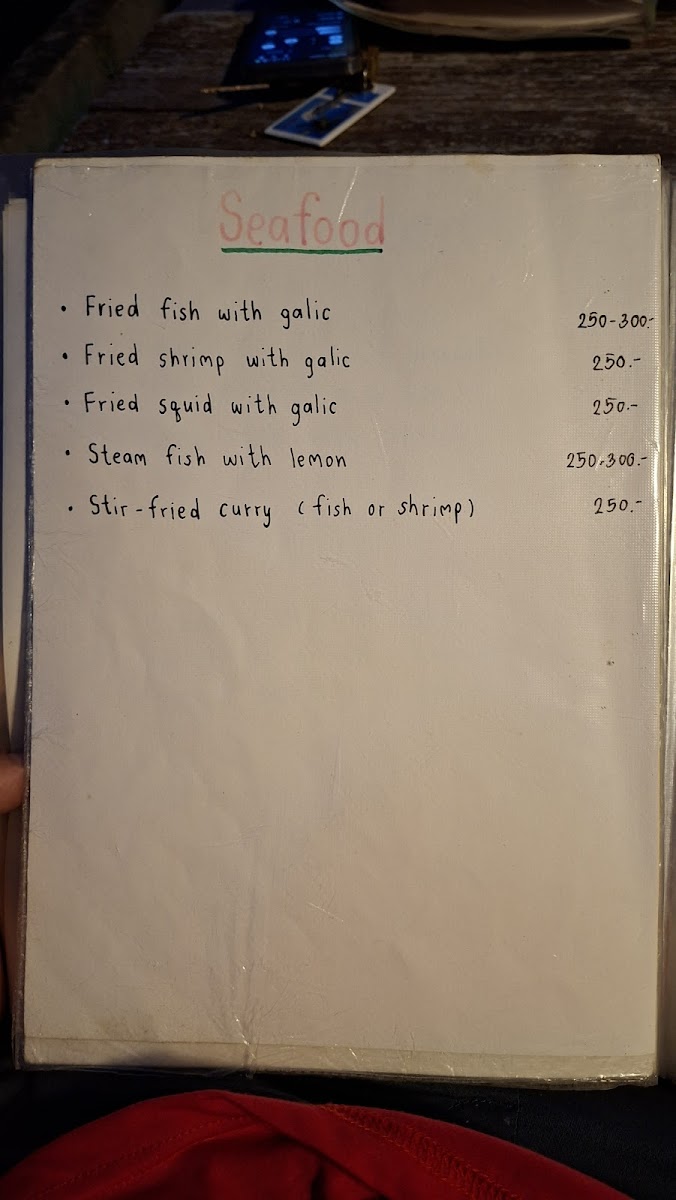 Seafood
• Fried fish with galic 250-300.-
• Fried shrimp with galic 250.-
• Fried squid with galic 250.-
• Steam fish with lemon 250-300.-
• Stir-fried curry (fish or shrimp) 250.-